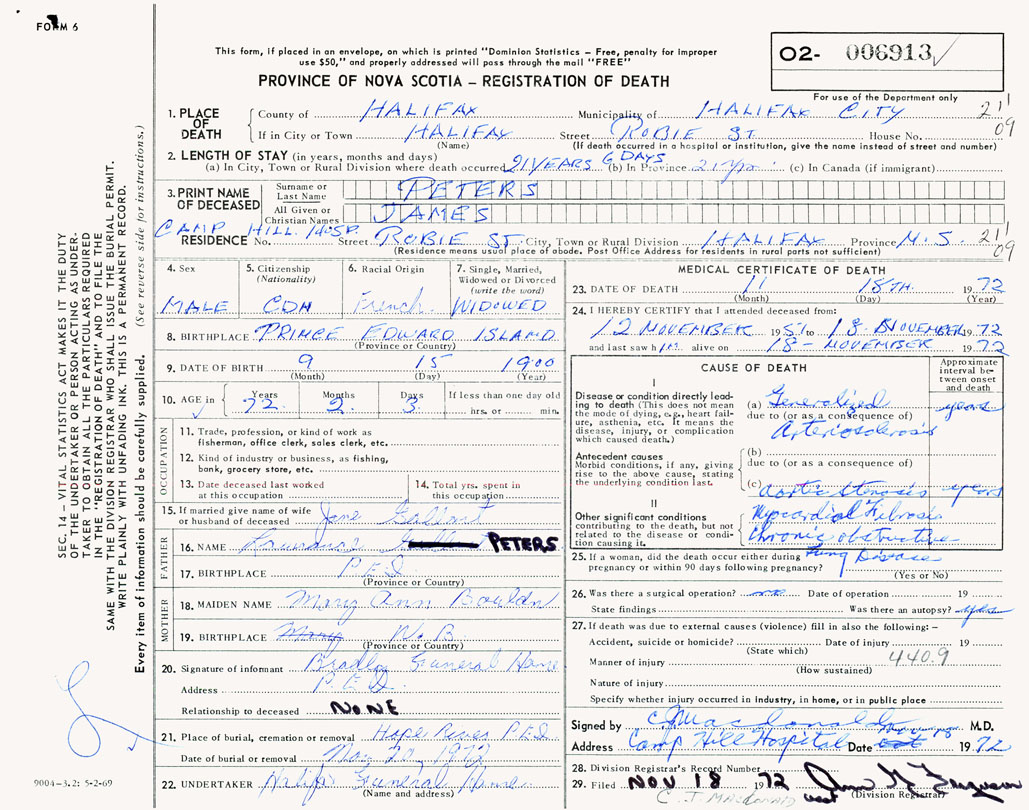 FORM 6
This form, if placed in an envelope, on which is printed "Dominion Statistics – Free, penalty for improper
use $50," and properly addressed will pass through the mail "FREE"
PROVINCE OF NOVA SCOTIA – REGISTRATION OF DEATH
02- 006913
For use of the Department only
1. PLACE OF DEATH
County of HALIFAX Municipality of HALIFAX CITY 211
If in City or Town HALIFAX Street ROBIE ST. House No. 09
(Name) (If death occurred in a hospital or institution, give the name instead of street and number)
2. LENGTH OF STAY (in years, months and days)
(a) In City, Town or Rural Division where death occurred 21 YEARS 6 DAYS (b) In Province 21 yrs. (c) In Canada (if immigrant)
3. PRINT NAME OF DECEASED
Surname or Last Name PETERS
All Given or Christian Names JAMES
CAMP HILL HOSP.
RESIDENCE No. Street ROBIE ST. City, Town or Rural Division HALIFAX Province N.S. 211
(Residence means usual place of abode. Post Office Address for residents in rural parts not sufficient) 09
4. Sex MALE
5. Citizenship (Nationality) CDN
6. Racial Origin French
7. Single, Married, Widowed or Divorced (write the word) WIDOWED
8. BIRTHPLACE PRINCE EDWARD ISLAND
(Province or Country)
9. DATE OF BIRTH 9 15 1900
(Month) (Day) (Year)
10. AGE in Years Months Days If less than one day old
72 2 3 hrs. or min.
OCCUPATION
11. Trade, profession, or kind of work as
fisherman, office clerk, sales clerk, etc.
12. Kind of industry or business, as fishing,
bank, grocery store, etc.
13. Date deceased last worked
at this occupation
14. Total yrs. spent in
this occupation
15. If married give name of wife
or husband of deceased Jane Gallant
FATHER
16. NAME PETERS
17. BIRTHPLACE P.E.I.
(Province or Country)
MOTHER
18. MAIDEN NAME Mary Ann
19. BIRTHPLACE Mary N.B.
(Province or Country)
20. Signature of informant Bradley Funeral Home
Address P.E.I.
Relationship to deceased NONE
21. Place of burial, cremation or removal Hope River P.E.I.
Date of burial or removal Nov. 20, 1972
22. UNDERTAKER Funeral Home
(Name and address)
MEDICAL CERTIFICATE OF DEATH
23. DATE OF DEATH 11 18TH 1972
(Month) (Day) (Year)
24. I HEREBY CERTIFY that I attended deceased from:
12 NOVEMBER 1951 to 18 NOVEMBER 1972
and last saw him alive on 18 - NOVEMBER 1972
CAUSE OF DEATH
Approximate interval between onset and death
I
Disease or condition directly leading to death (This does not mean the mode of dying, e.g., heart failure, asthenia, etc. It means the disease, injury, or complication which caused death.)
(a) Generalized years
due to (or as a consequence of)
Arteriosclerosis
Antecedent causes
Morbid conditions, if any, giving rise to the above cause, stating the underlying condition last.
(b)
due to (or as a consequence of)
(c) Aortic Stenosis years
II
Other significant conditions contributing to the death, but not related to the disease or condition causing it.
Myocardial Fibrosis
Chronic obstructive
Lung Disease
25. If a woman, did the death occur either during
pregnancy or within 90 days following pregnancy?
(Yes or No)
26. Was there a surgical operation? Date of operation 19
State findings Was there an autopsy?
27. If death was due to external causes (violence) fill in also the following: –
Accident, suicide or homicide? Date of injury 19
(State which)
Manner of injury 440.9
(How sustained)
Nature of injury
Specify whether injury occurred in industry, in home, or in public place
Signed by C J MacDonald M.D.
Address Camp Hill Hospital Date 1972
28. Division Registrar's Record Number
29. Filed NOV 18 1972
(Division Registrar)
C. J. MacDonald
SEC. 14 – VITAL STATISTICS ACT MAKES IT THE DUTY
OF THE UNDERTAKER OR PERSON ACTING AS UNDER-
TAKER TO OBTAIN ALL THE PARTICULARS REQUIRED
IN THE "REGISTRATION OF DEATH" AND TO FILE THE
SAME WITH THE DIVISION REGISTRAR WHO SHALL ISSUE THE BURIAL PERMIT.
WRITE PLAINLY WITH UNFADING INK. THIS IS A PERMANENT RECORD.
Every item of information should be carefully supplied. (See reverse side for instructions.)
9004-3.2: 5-2-69